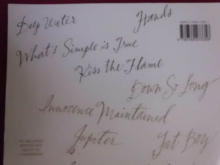 Deep Water
Hands
What's Simple is True
Kiss the Flame
Down So Long
Innocence Maintained
Jupiter
Fat Boy